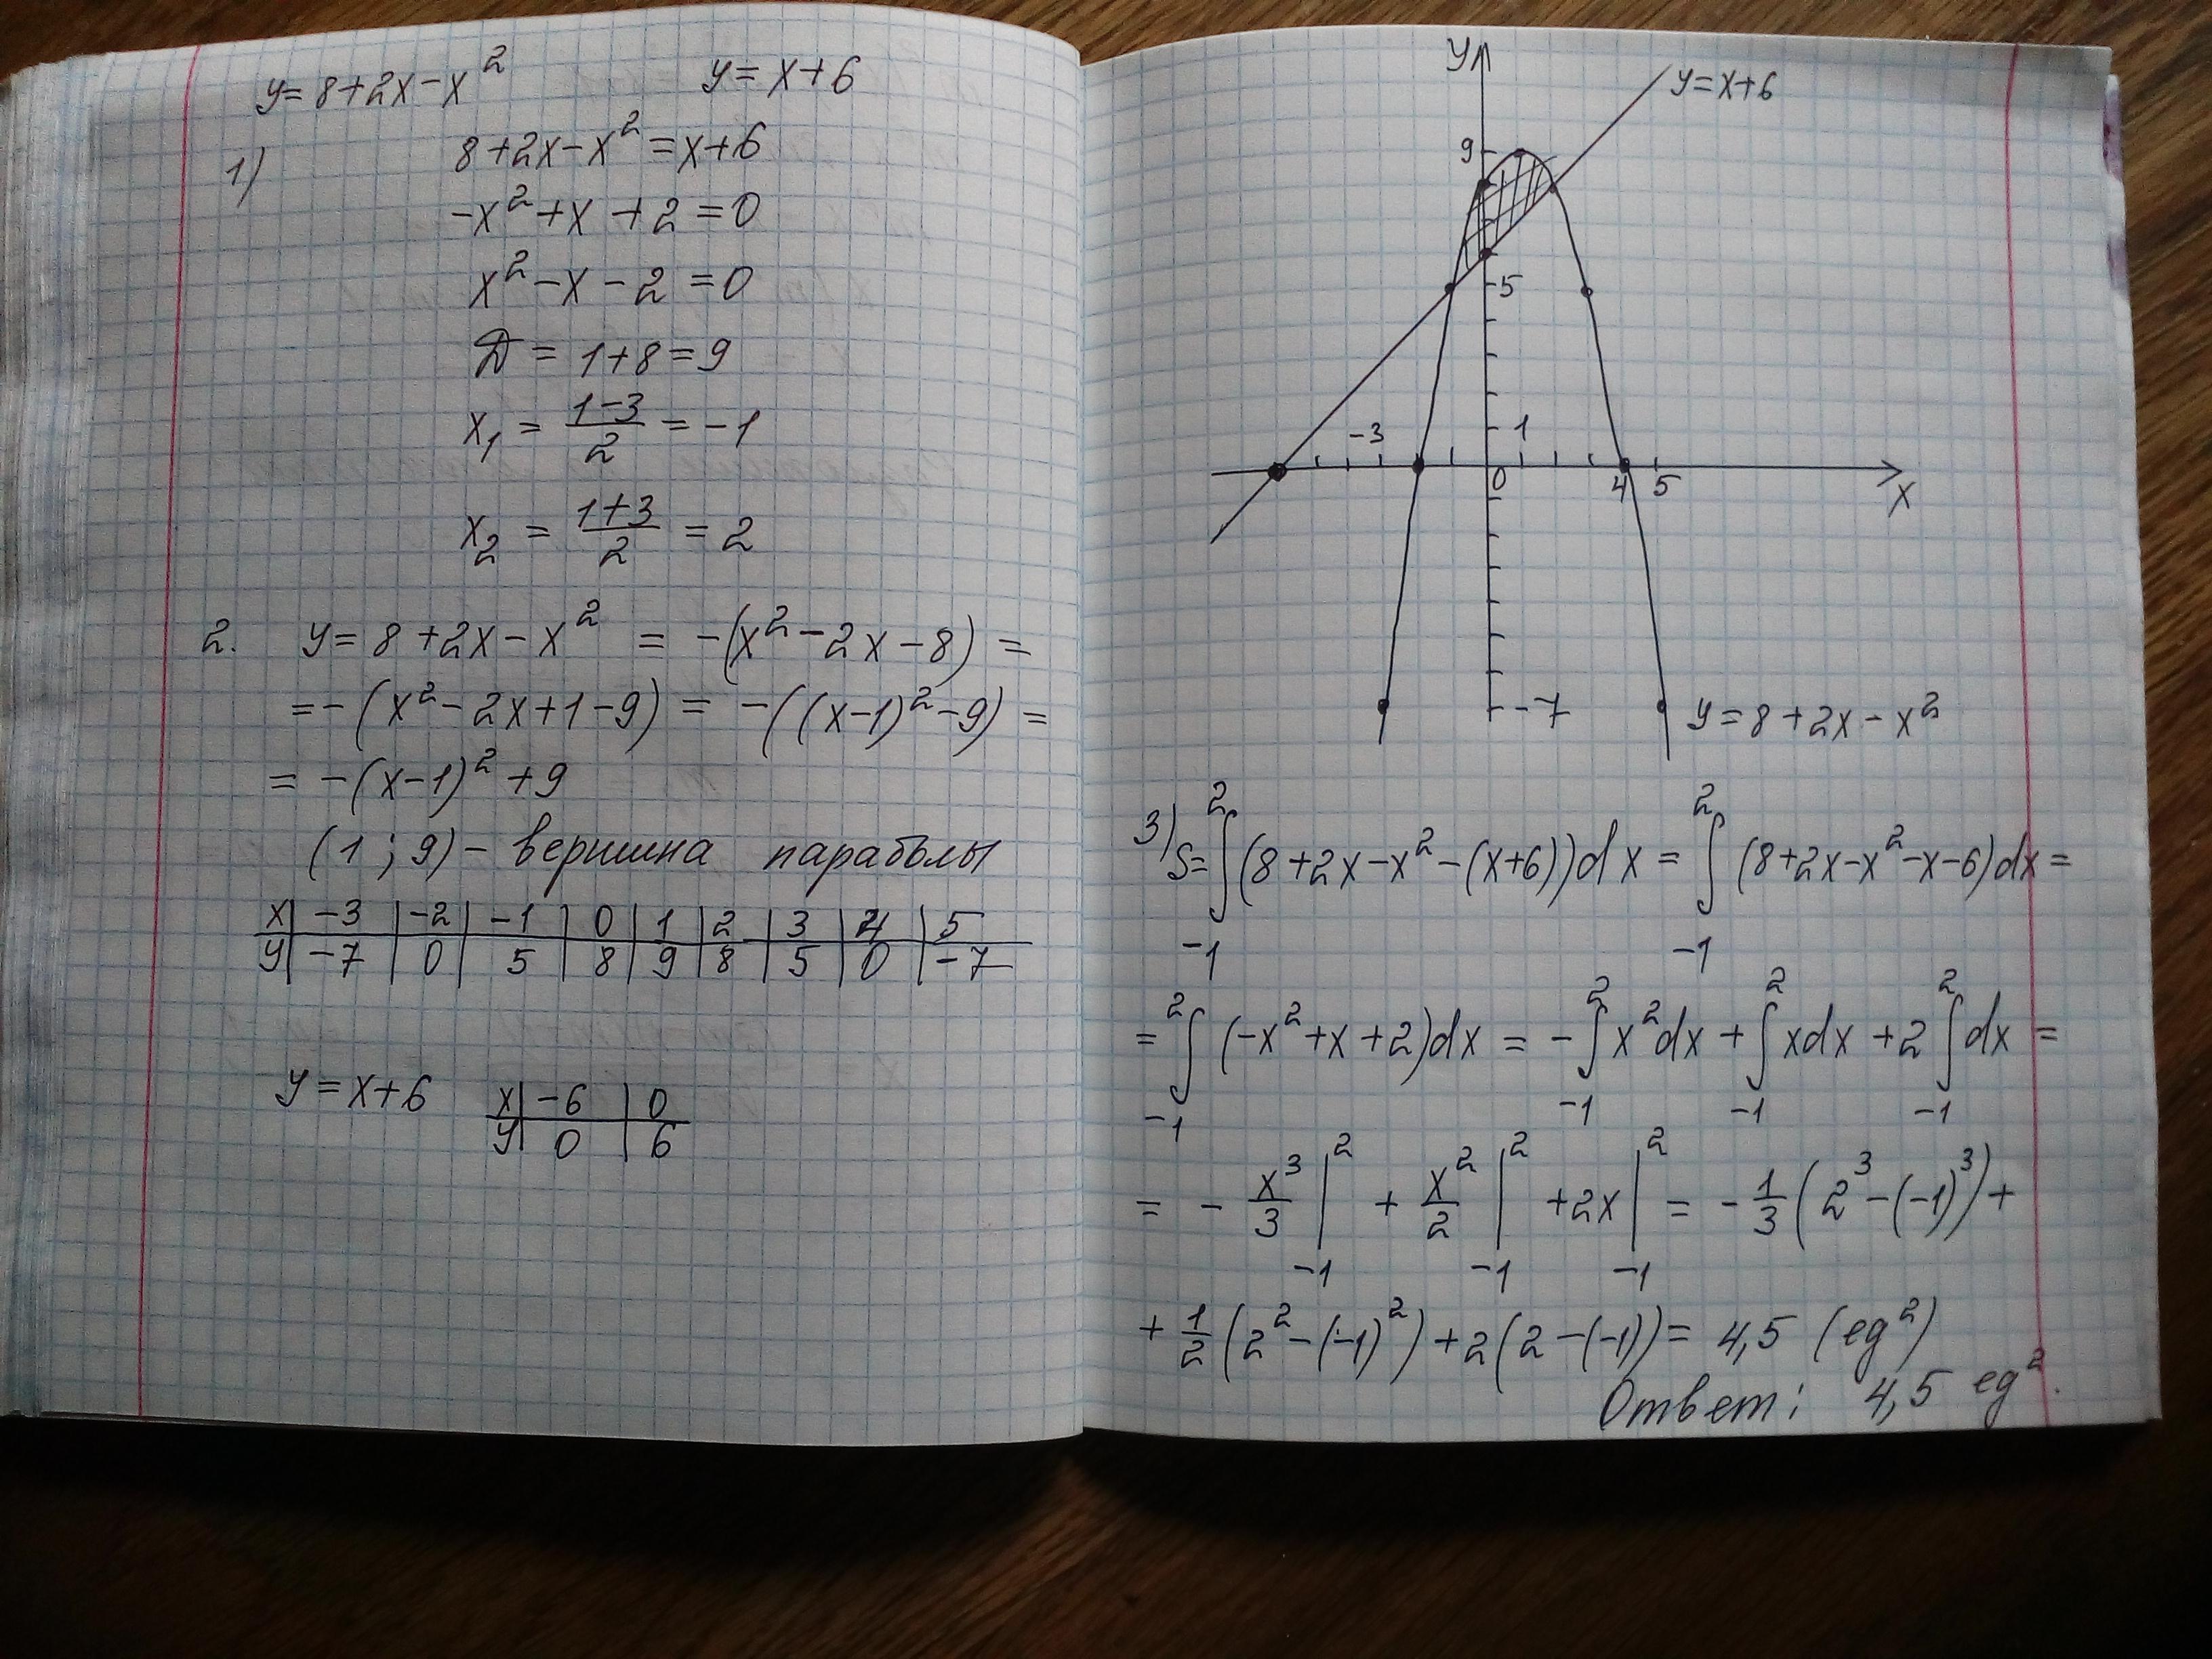 y=8+2x−x² y=x+6
1) 8+2x−x²=x+6
−x²+x+2=0
x²−x−2=0
D=1+8=9
x₁ = (1−3)/2 = −1
x₂ = (1+3)/2 = 2
2. y=8+2x−x² = −(x²−2x−8) =
=−(x²−2x+1−9) = −((x−1)²−9) =
= −(x−1)²+9
(1;9) − вершина параболы
x | −3 | −2 | −1 | 0 | 1 | 2 | 3 | 4 | 5
y | −7 | 0 | 5 | 8 | 9 | 8 | 5 | 0 | −7
y=x+6
x | −6 | 0
y | 0 | 6
y
y=x+6
9
5
−3 1
0 4 5 x
−7 y=8+2x−x²
3) S=∫₋₁²(8+2x−x²−(x+6))dx = ∫₋₁²(8+2x−x²−x−6)dx =
= ∫₋₁²(−x²+x+2)dx = −∫₋₁²x²dx + ∫₋₁²xdx + 2∫₋₁²dx =
= − x³/3 |₋₁² + x²/2 |₋₁² + 2x |₋₁² = −1/3(2³−(−1)³)+
+ 1/2(2²−(−1)²)+2(2−(−1)) = 4,5 (ед²)
Ответ: 4,5 ед².